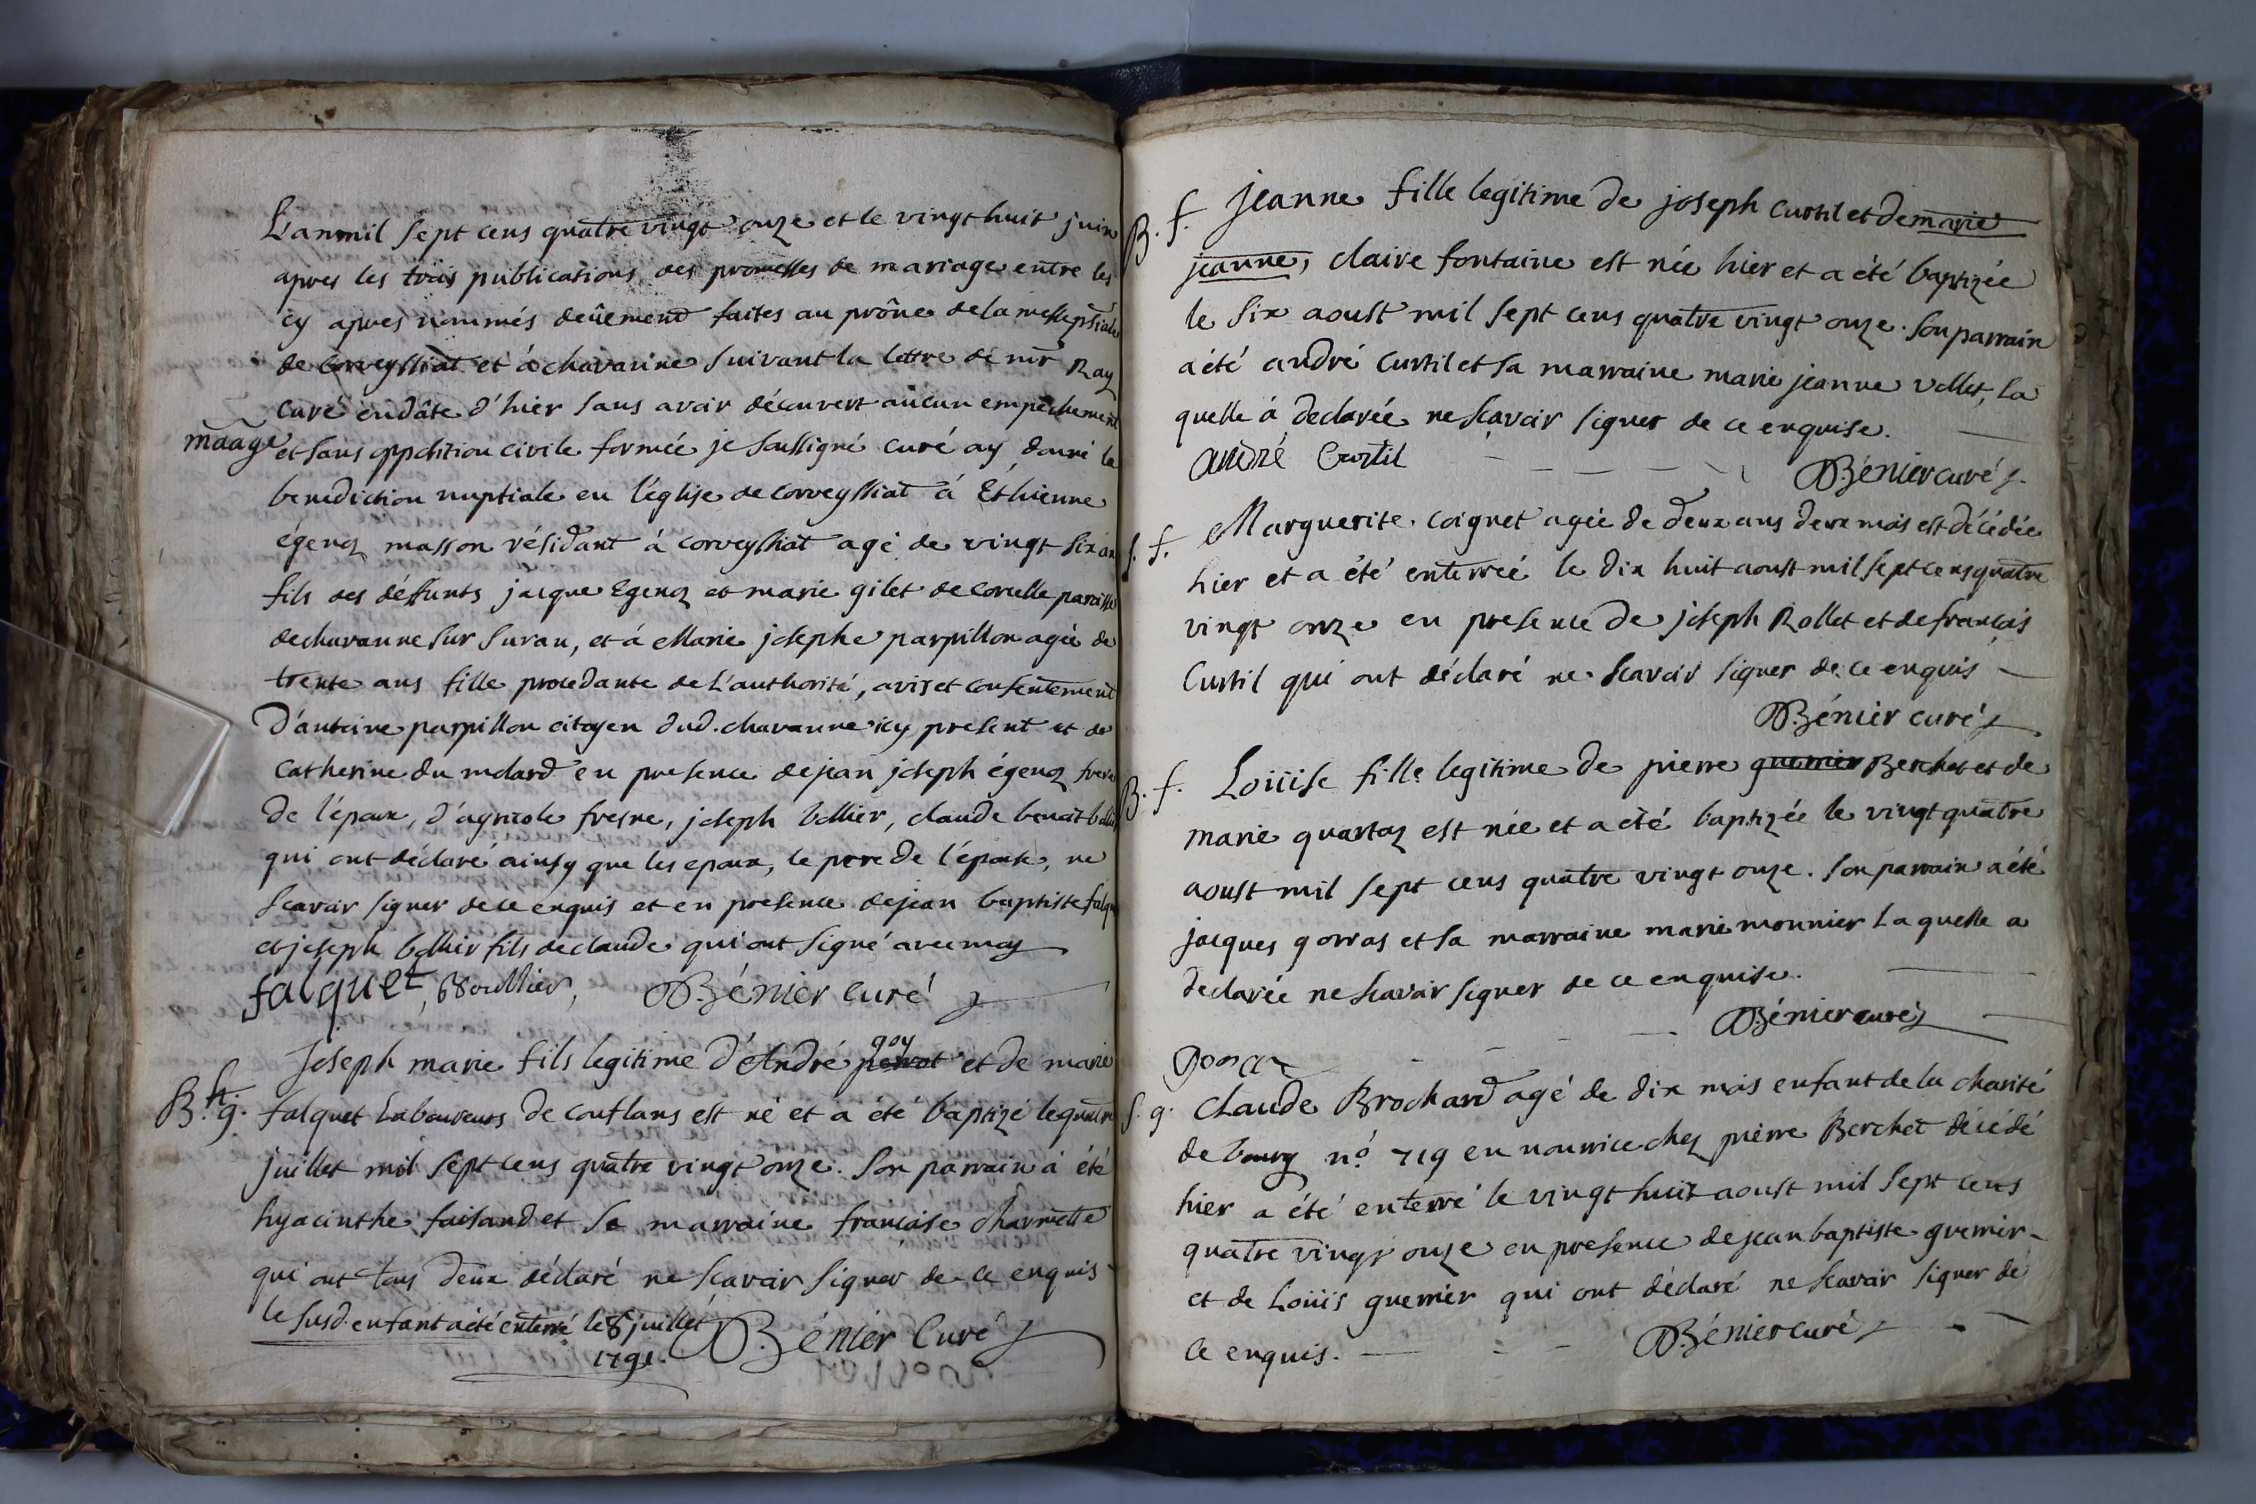 L'an mil sept cens quatre vingt onze et le vingt huit juin
apres les trois publications des promesses de mariage entre les
cy apres nommés deüement faites au prône de la messe
de Corveyssiat et à chavanne suivant la lettre de mr Ray
curé en dâte d'hier sans avoir découvert aucun empêchement
maage
et sans opposition civile formée je soussigné curé ay donné la
benediction nuptiale en l'église de corveyssiat à Ethienne
égenoz masson résidant à corveyssiat agé de vingt six an
fils des déffunts jacque Egenoz et marie gilet de Corcelle paroisse
de chavanne sur suran, et à Marie josephe parpillon agée de
trente ans fille procedante de L'authorité, avis et consentement
d'antoine parpillon citoyen dud. chavanne icy present et de
Catherine du molard en presence de jean joseph égenoz frere
de l'époux, d'agricole fresne, joseph bollier, claude benoit
qui ont déclaré ainsy que les epoux, le pere de l'épouse, ne
scavoir signer de ce enquis et en presence de jean baptiste falq
et joseph bollier fils de claude qui ont signé avec moy
falquet, Boullier, Bénier curé
Joseph marie fils legitime d'André perrot goy et de marie
B. St. g.
falquet Laboureurs de Conflans est né et a été baptizé le quatre
juillet mil sept cens quatre vingt onze. Son parrain a été
hyacinthe faisand et sa marraine francoise charnette
qui ont tous deux déclaré ne scavoir signer de ce enquis
le susd. enfant a été enterré le 8 juillet
1791. Bénier Curé
B. f. jeanne fille legitime de joseph curtil et de marie
jeanne, claire fontaine est née hier et a été baptizée
le six aoust mil sept cens quatre vingt onze. Son parrain
a été andré curtil et sa marraine marie jeanne vollet, la
quelle à declarée ne scavoir signer de ce enquise.
André Curtil
Bénier curé
s. f. Marguerite coignet agée de deux ans deux mois est décédée
hier et a été enterrée le dix huit aoust mil sept cens quatre
vingt onze en presence de joseph Rollet et de francois
Curtil qui ont déclaré ne scavoir signer de ce enquis
Bénier curé
B. f. Loüise fille legitime de pierre guerrier Berchet et de
marie quartoz est née et a été baptizée le vingt quatre
aoust mil sept cens quatre vingt onze. Son parrain a été
jacques gorras et sa marraine marie monnier La quelle a
declarée ne scavoir signer de ce enquise.
Bénier curé
s. g. Claude Brochard agé de dix mois enfant de la charité
de bourg no. 719 en nourrice chez pierre Berchet décédé
hier a été enterré le vingt huit aoust mil sept cens
quatre vingt onze en presence de jean baptiste guerrier
et de Loüis guerrier qui ont déclaré ne scavoir signer de
ce enquis. Bénier curé